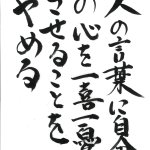 人の言葉に自分
の心を一喜一憂
させることを
やめる